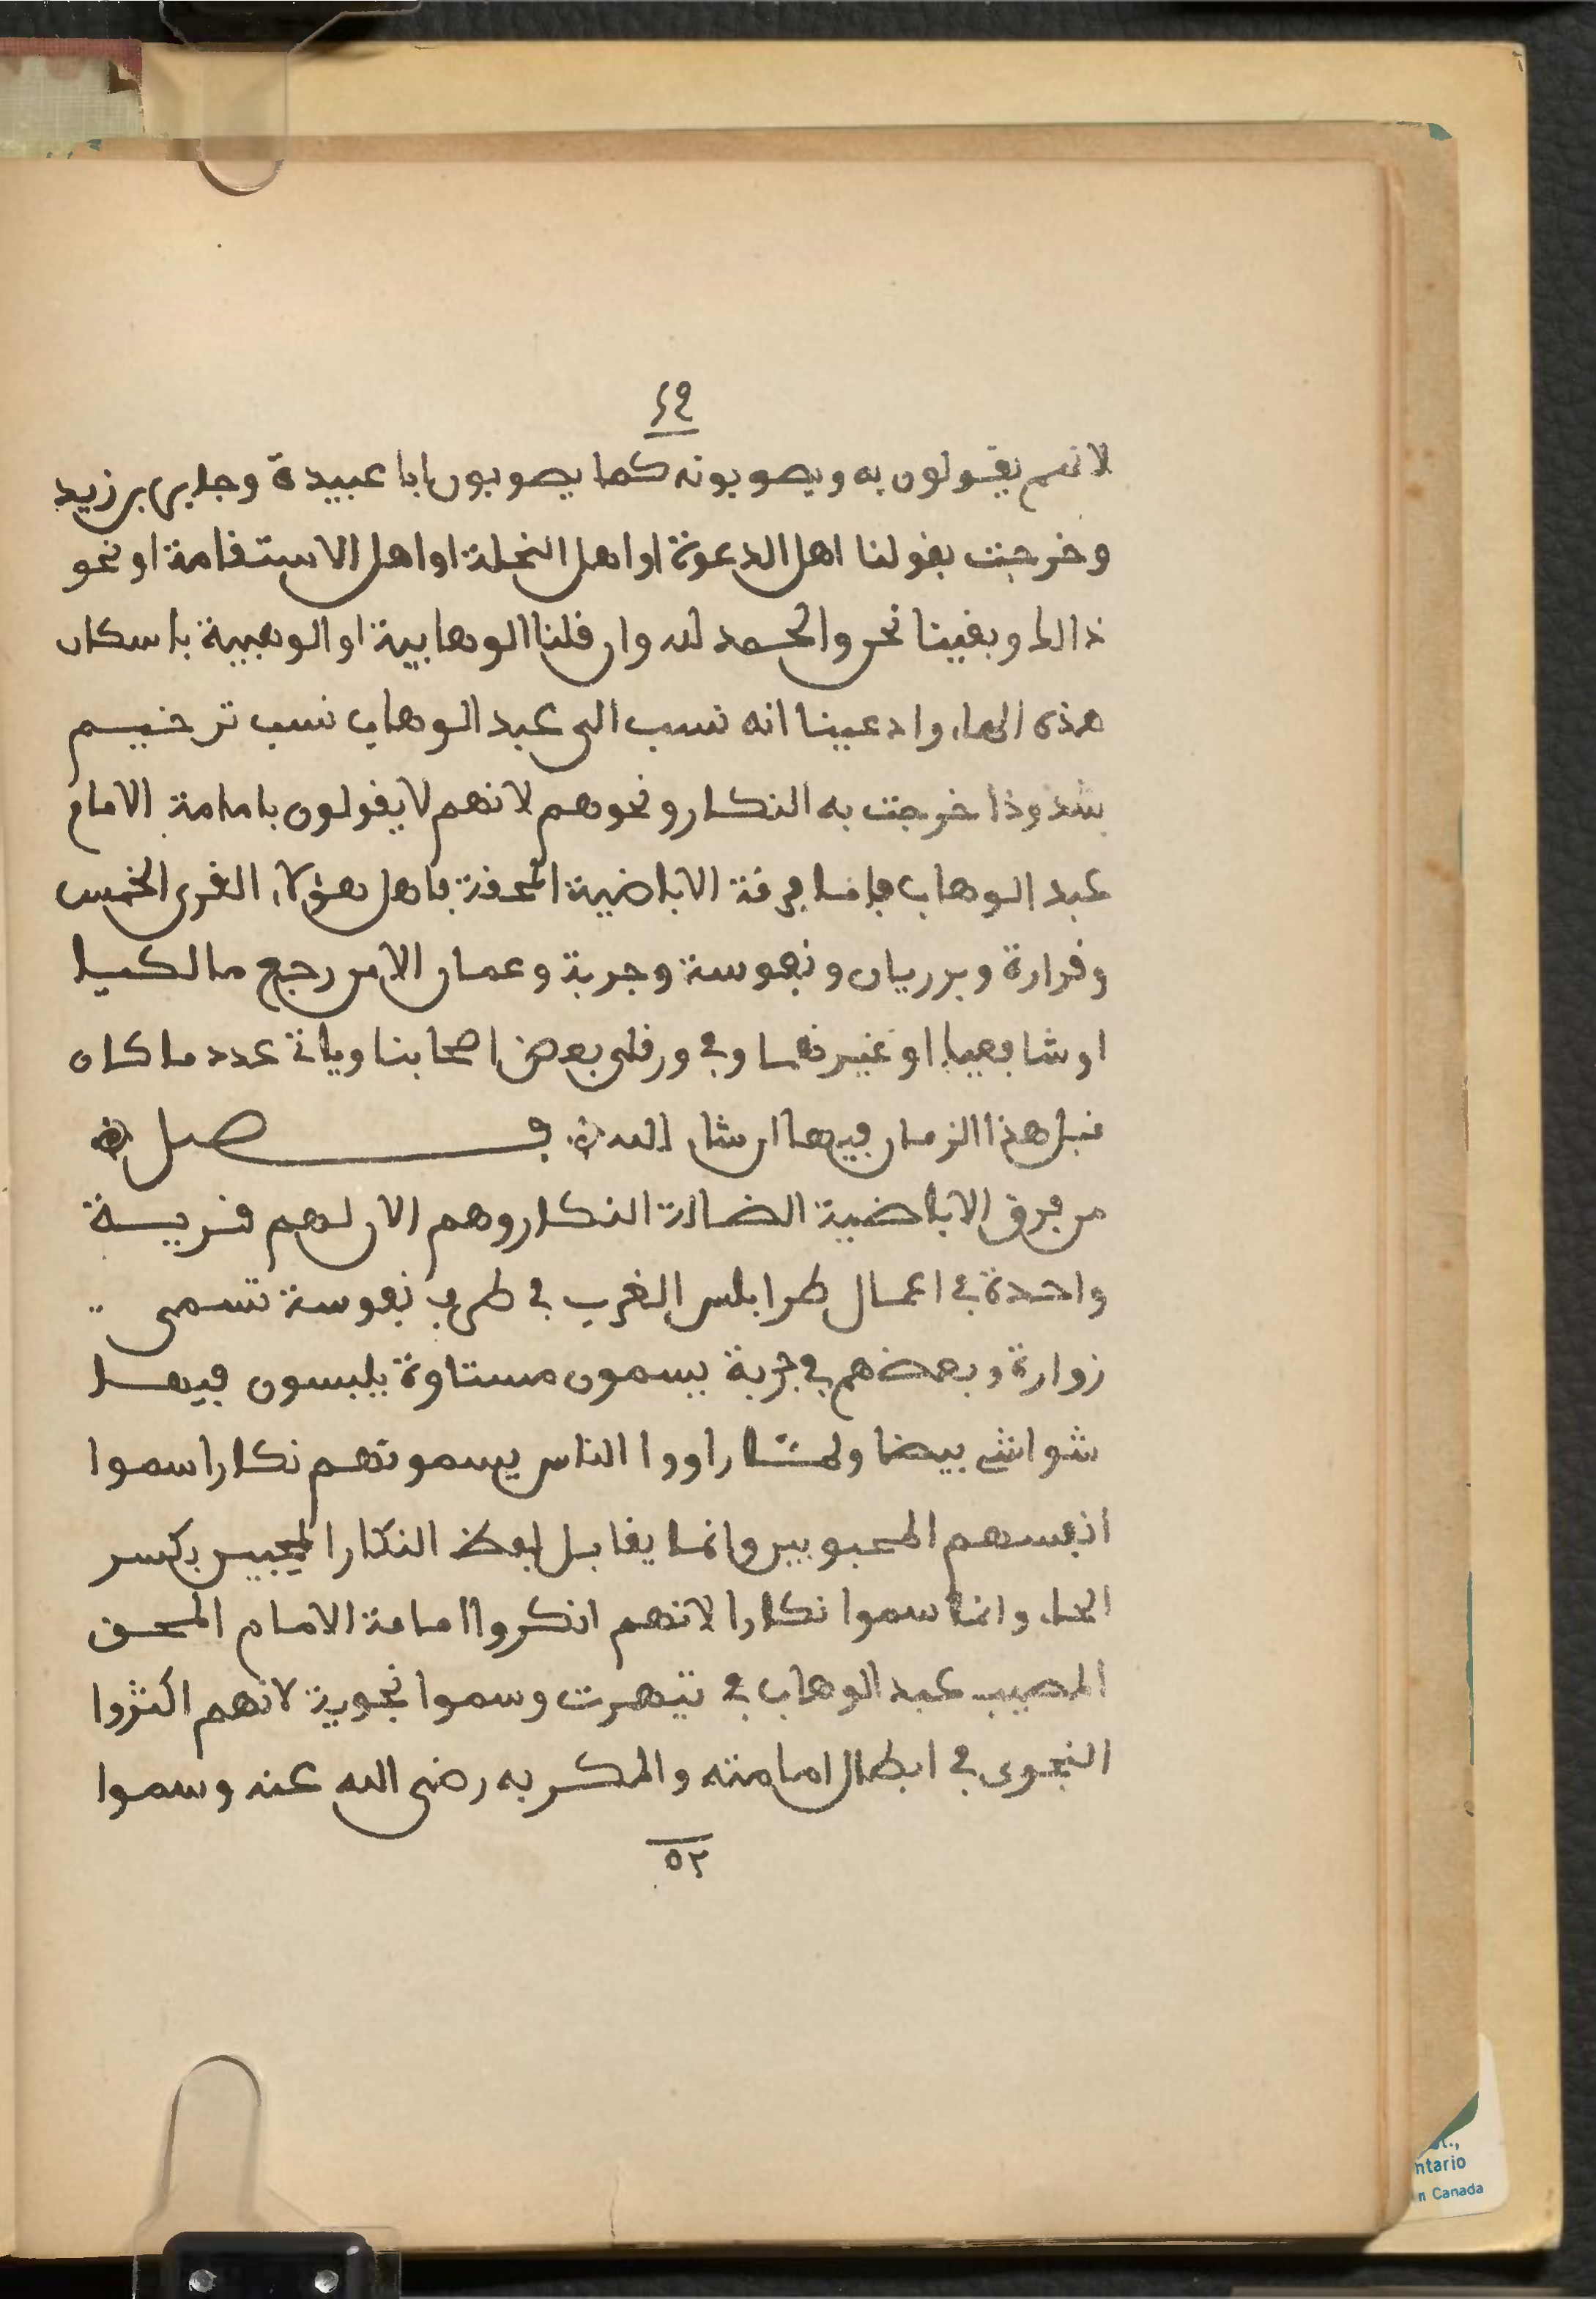 ٤٩
لانهم يقولون به ويصوبونه كما يصوبون ابا عبيدة وجابر بن زيد
وخرجت بقولنا اهل الدعوة او اهل النحلة او اهل الاستقامة او نحو
ذالك وبقينا نحن والحمد لله وان قلنا الوهابية او الوهبية باسكان
هذه الهاء وادعينا انه نسب الى عبد الوهاب نسب ترخيم
شذوذا خرجت به النكار ونحوهم لانهم لا يقولون بامامة الامام
عبد الوهاب فانما فرقة الاباضية المحقة باهل هؤلاء القرى الخمس
وقرارة وبرريان ونفوسة وجربة وعمان الامن رجع مالكيا
او شافعيا او غيرهما وفي ورقلى بعض اصحابنا وياتي عدد ما كان
قبل هذا الزمان فيها ان شاء الله فصل
من فرق الاباضية الضالة النكار وهم الان لهم قرية
واحدة في اعمال طرابلس الغرب في طرف نفوسة تسمى
زوارة وبعضهم في جربة يسمون مستاوة يلبسون فيها
شواشي بيضا ولما راووا الناس يسمونهم نكارا سموا
انفسهم المحبوبين وانما يقابل لفظ النكار المحبين بكسر
الحاء وانما سموا نكارا لانهم انكروا امامة الامام المحق
المصيب عبد الوهاب في تيهرت وسموا نجوية لانهم اكثروا
النجوى في ابطال امامته والمكر به رضى الله عنه وسموا
٥٢
ntario
n Canada